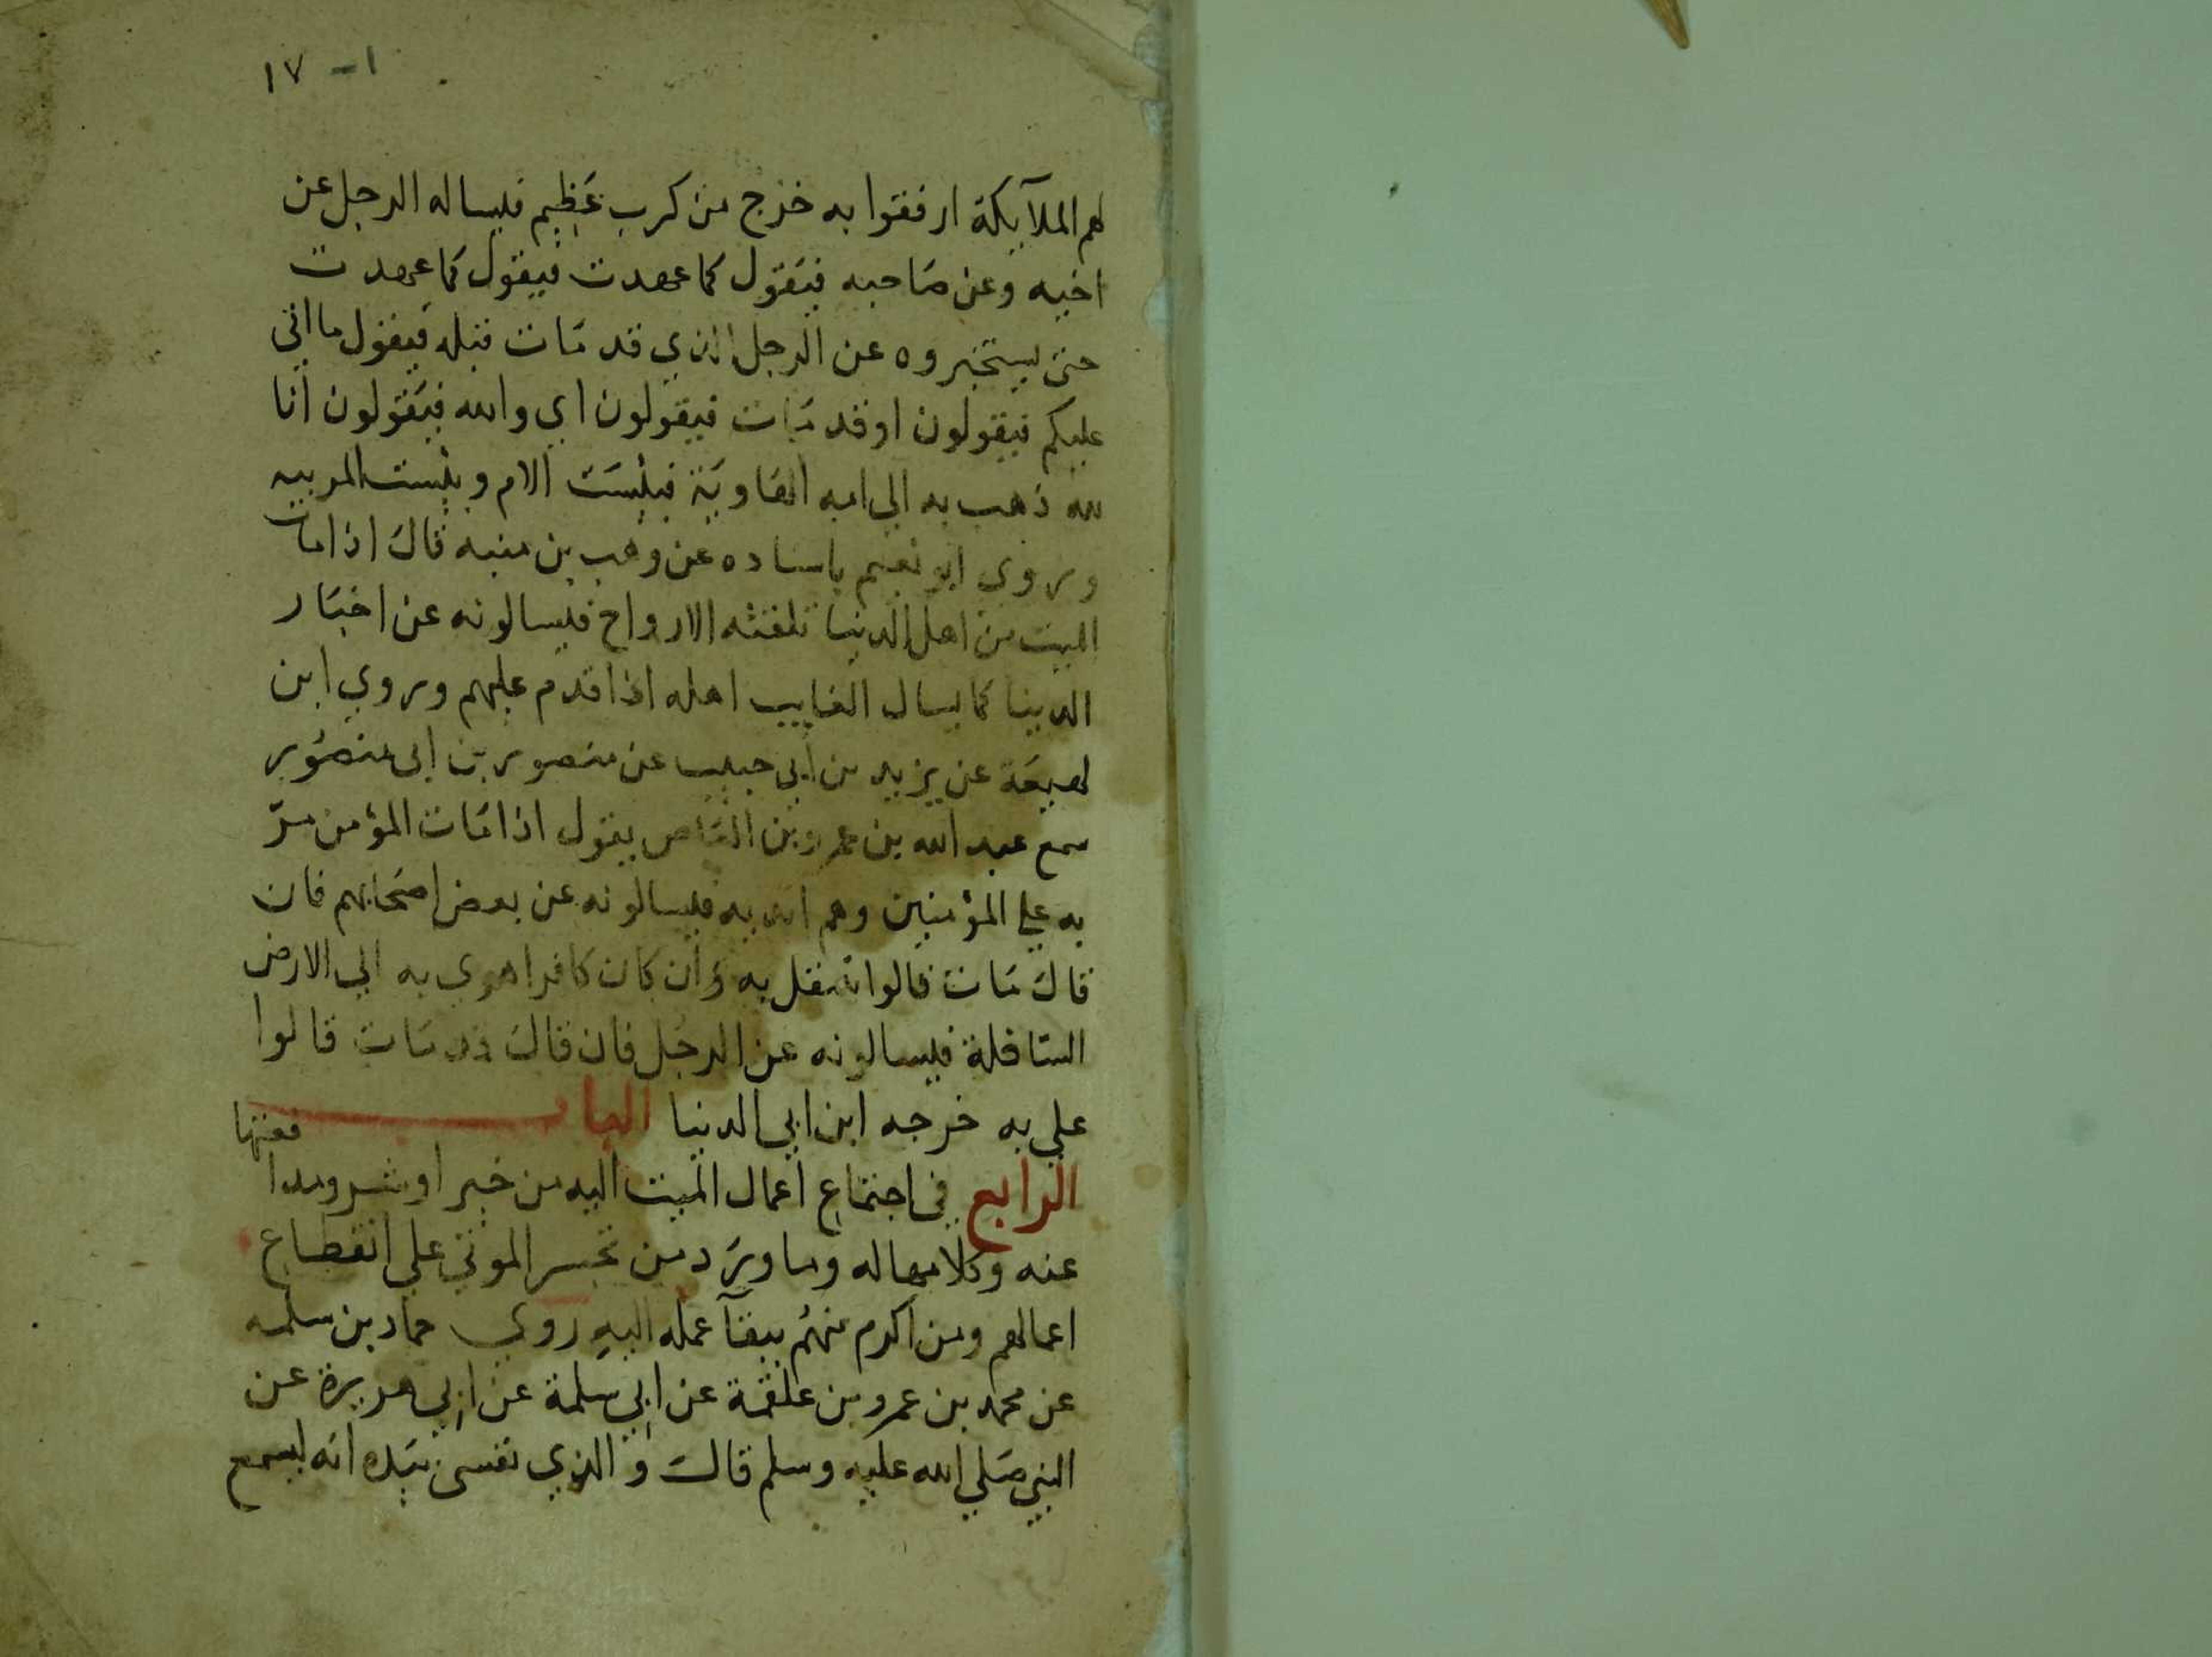 ١- ١٧
لهم الملآيكة ارفقوا به خرج من كرب عَظِيم فيساله الرجل عن
اخيه وعن صَاحبه فيَقول كما عهدت فيقول كما عهدت
حتى يستخبروه عن الرجل الذي قد مَات قبله فيقول ما اتى
عليكم فيقولون اوقد مَات فيقولون اي والله فيَقولون انا
لله ذهب به الي امه الهَاويَة فبئِسَت الام وبئِست المربيه
وروي ابو نعيم باسناده عن وهب بن منبه قال اذا مات
الميت من اهل الدنيا تلقته الارواح فيسالونه عن اخبَار
الدنيا كما يسال الغايب اهله اذا قدم عليهم وروي ابن
لهيعَة عن يزيد بن ابي حبيب عن منصور بن ابي منصُور
سمع عبد الله بن عمرو بن العَاص يقول اذا مَات المؤمن مرّ
به علي المؤمنين وهم اندية فيسالونه عن بعض اصحَابهم فان
قال مَات قالوا سفل به وَان كان كافرا هوي به الي الارض
السّافلة فيسالونه عن الرجُل فان قال قد مَات قالوا
علي به خرجه ابن ابي الدنيا الباب
الرابع في اجتمَاع اعمال الميت اليه من خير او شر ومدافعتها
عنه وكلامها له وما وَرَد من تحسر الموتي علي انقطاع
اعمالهم ومن اكرم منهُم ببقآ عمله اليهِ روي حماد بن سلمه
عن محمد بن عمرو بن علقمة عن ابي سلمة عن ابي هريرة عن
النبي صَلي الله عليه وسلم قال وَالذي نفسي بيَده انه ليسمع